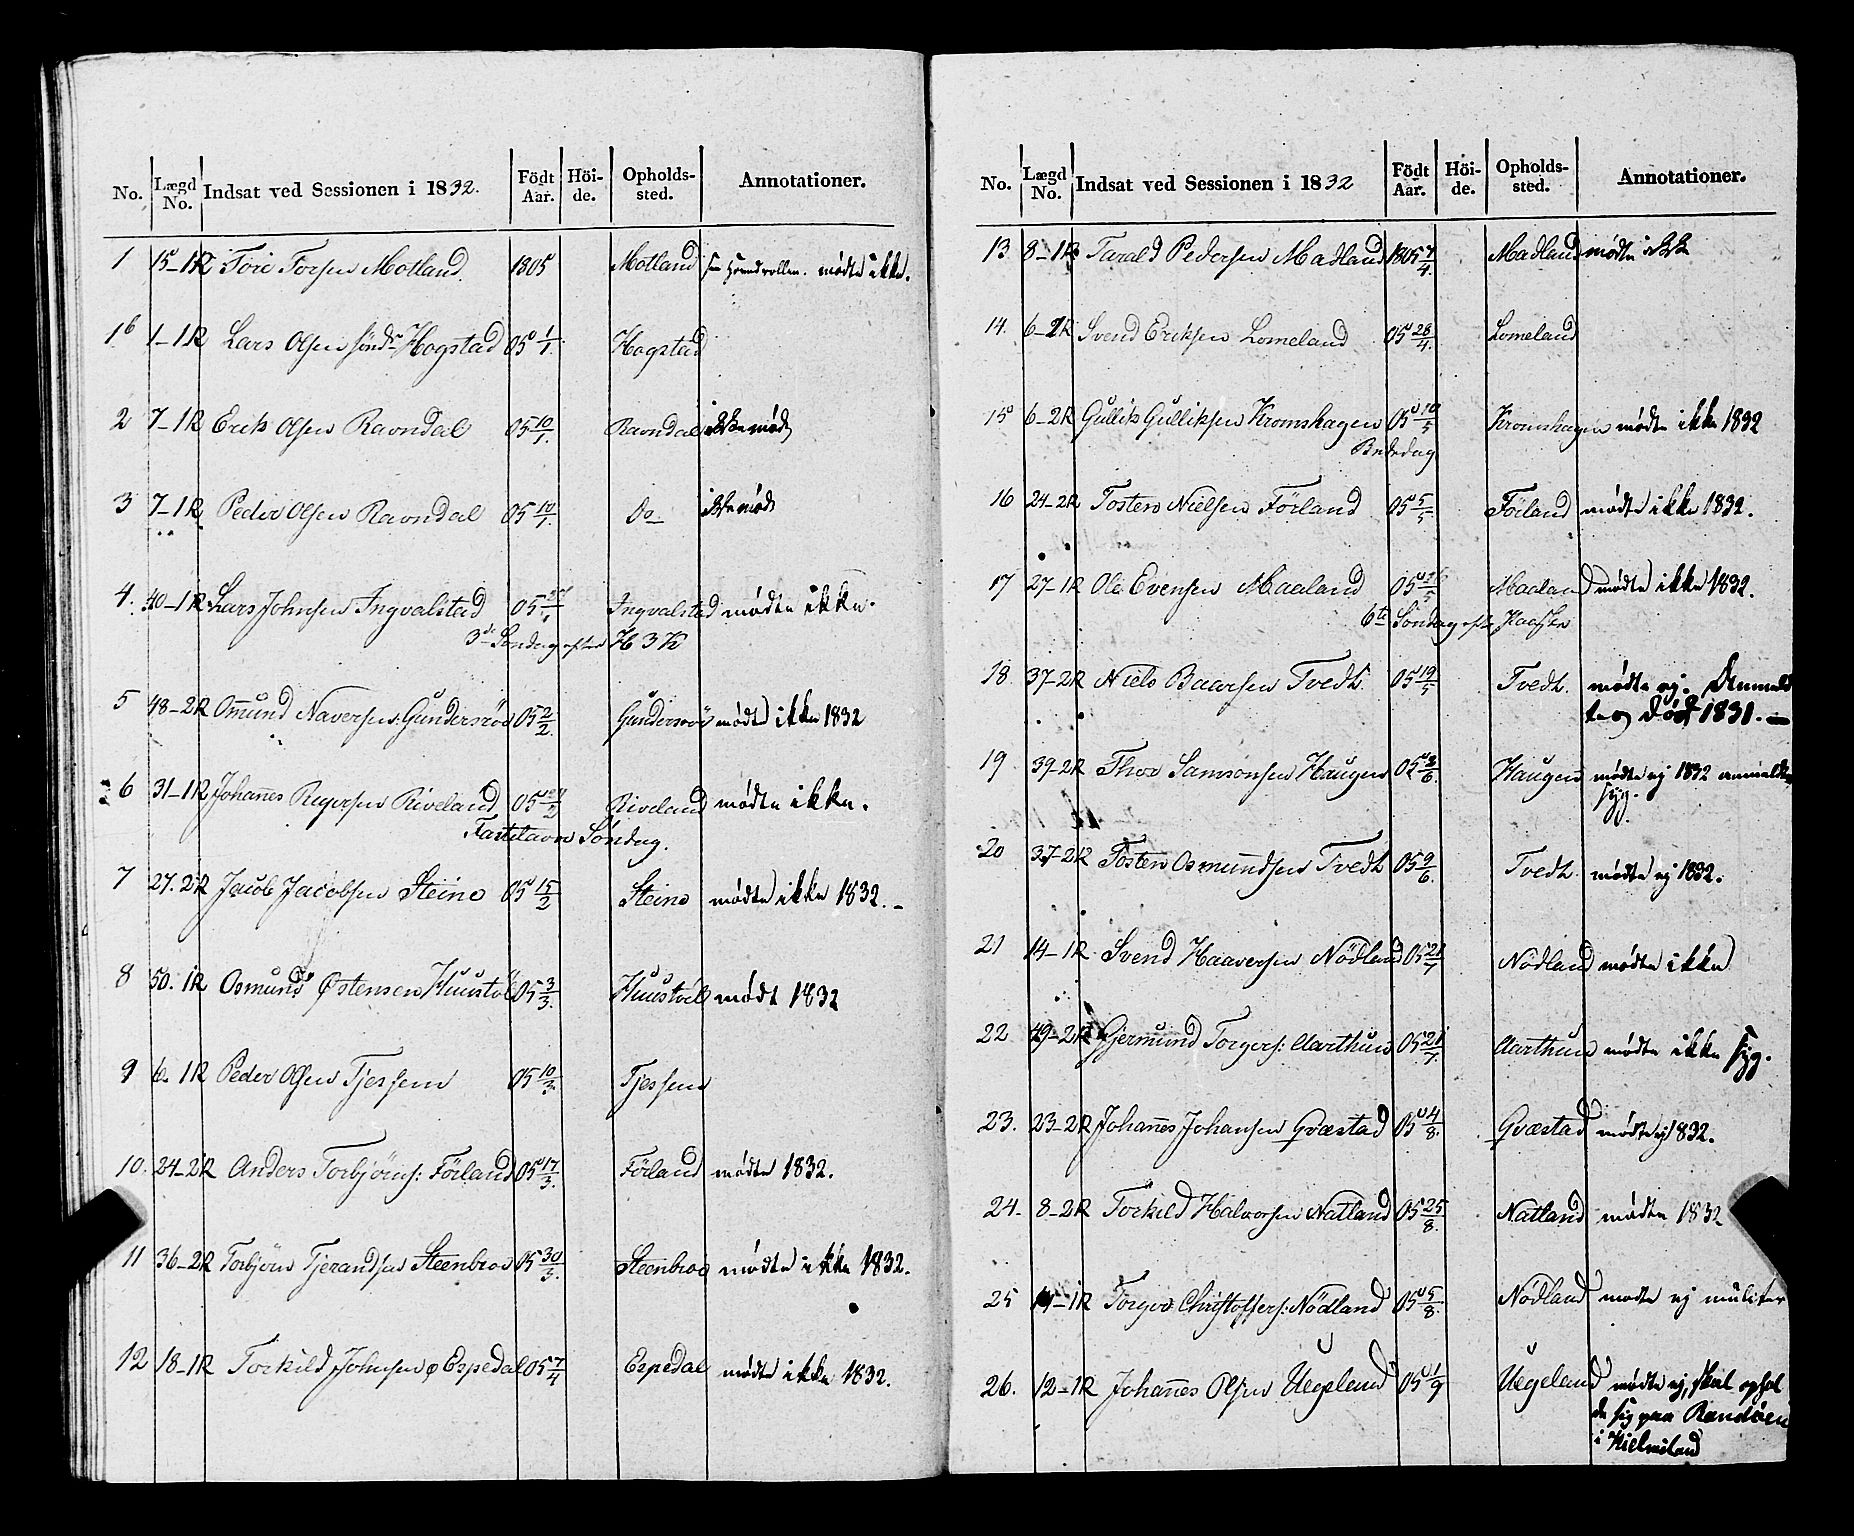 No. Lægd No. Indsat ved Sessionen i 1832. Födt Aar. Höi-de. Opholds-sted. Annotationer.
1 15-1R Tore Torsen Motland 1805 Motland mødte ikke.
1b 1-1R Lars Olsen sönd Hogstad 05 1/1 Hogstad
2 7-1R Erik Olsen Ravndal 05 10/1 Ravndal ikke mødt
3 7-1R Peder Olsen Ravndal 05 10/1 Do ikke mødt
4. 40-1R Lars Johnsen Ingvalstad 05 Ingvalstad mødte ikke.
3de Söndag efter H 3 K
5 48-2R Omund Naversen Gundersröe 05 2/2 Gundersröe mødte ikke 1832
6 31-1R Johanes Riveland 05 Riveland mødte ikke.
Fastelavns Söndag.
7 27. 2R Jacob Jacobsen Steine 05 15/2 Steine mødte ikke 1832. –
8 50. 1R Osmund Østensen Huustöl 05 3/3. Huustöl mødt 1832
9 6. 1R Peder Olsen Tjessem 05 10/3. Tjessem
10. 24-2R Anders Torbjörns: Förland 05 17/3. Förland mødte 1832.
11 36-2R Torbjörn Tjerandsen Steenbroe 05 30/3. Steenbroe mødte ikke 1832.
12 18-1R Torkild Johnsen Espedal 05 7/4 Espedal mødte ikke 1832.
No. Lægd No. Indsat ved Sessionen i 1832 Födt Aar. Höi-de. Opholds-sted. Annotationer.
13 8-1R Tarald Pedersen Madland 1805 7/4. Madland mødte ikke
14. 6-2R Svend Eriksen Lomeland 05 28/4. Lomeland
15 6-2R Gullik Gulliksen Kromshagen 05 10/5 Kromshagen mødte ikke 1832
Bededag
16 24-2R Tosten Nielsen Förland 05 5/5. Förland mødte ikke 1832.
17 27-1R Ole Evensen Maaland 05 Maaland mødte ikke 1832.
6te Söndag eft Paaske
18. 37-2R Niels Baarsen Tvedt. 05 19/5 Tvedt. mødte ej. Anmeld
tes død 1831. –
19 39-2R Thor Samsonsen Haugen 05 3/6. Haugen mødte ej 1832 anmeldtes
syg.
20 37-2R Tosten Osmundsen Tvedt 05 9/6. Tvedt. mødte ej 1832.
21 14-1R Svend Haaversen Nödland 05 21/7 Nödland mødte ikke
22 49-2R Gjermund Torgers: Aarthun 05 21/7. Aarthun mødte ikke syg.
23. 23-2R Johannes Johansen Qvæstad 05 4/8. Qvæstad mødte ej 1832.
24. 8-2R Torkild Halvorsen Natland 05 25/8. Natland mødte 1832
25 14-1R Torger Christoffers: Nödland 05 5/8. Nödland mødte ej
26. 12-1R Johannes Olsen Uegeland 05 1/9 Uegeland mødte ej, skal ophol
de sig paa Randöen
i Hielmeland